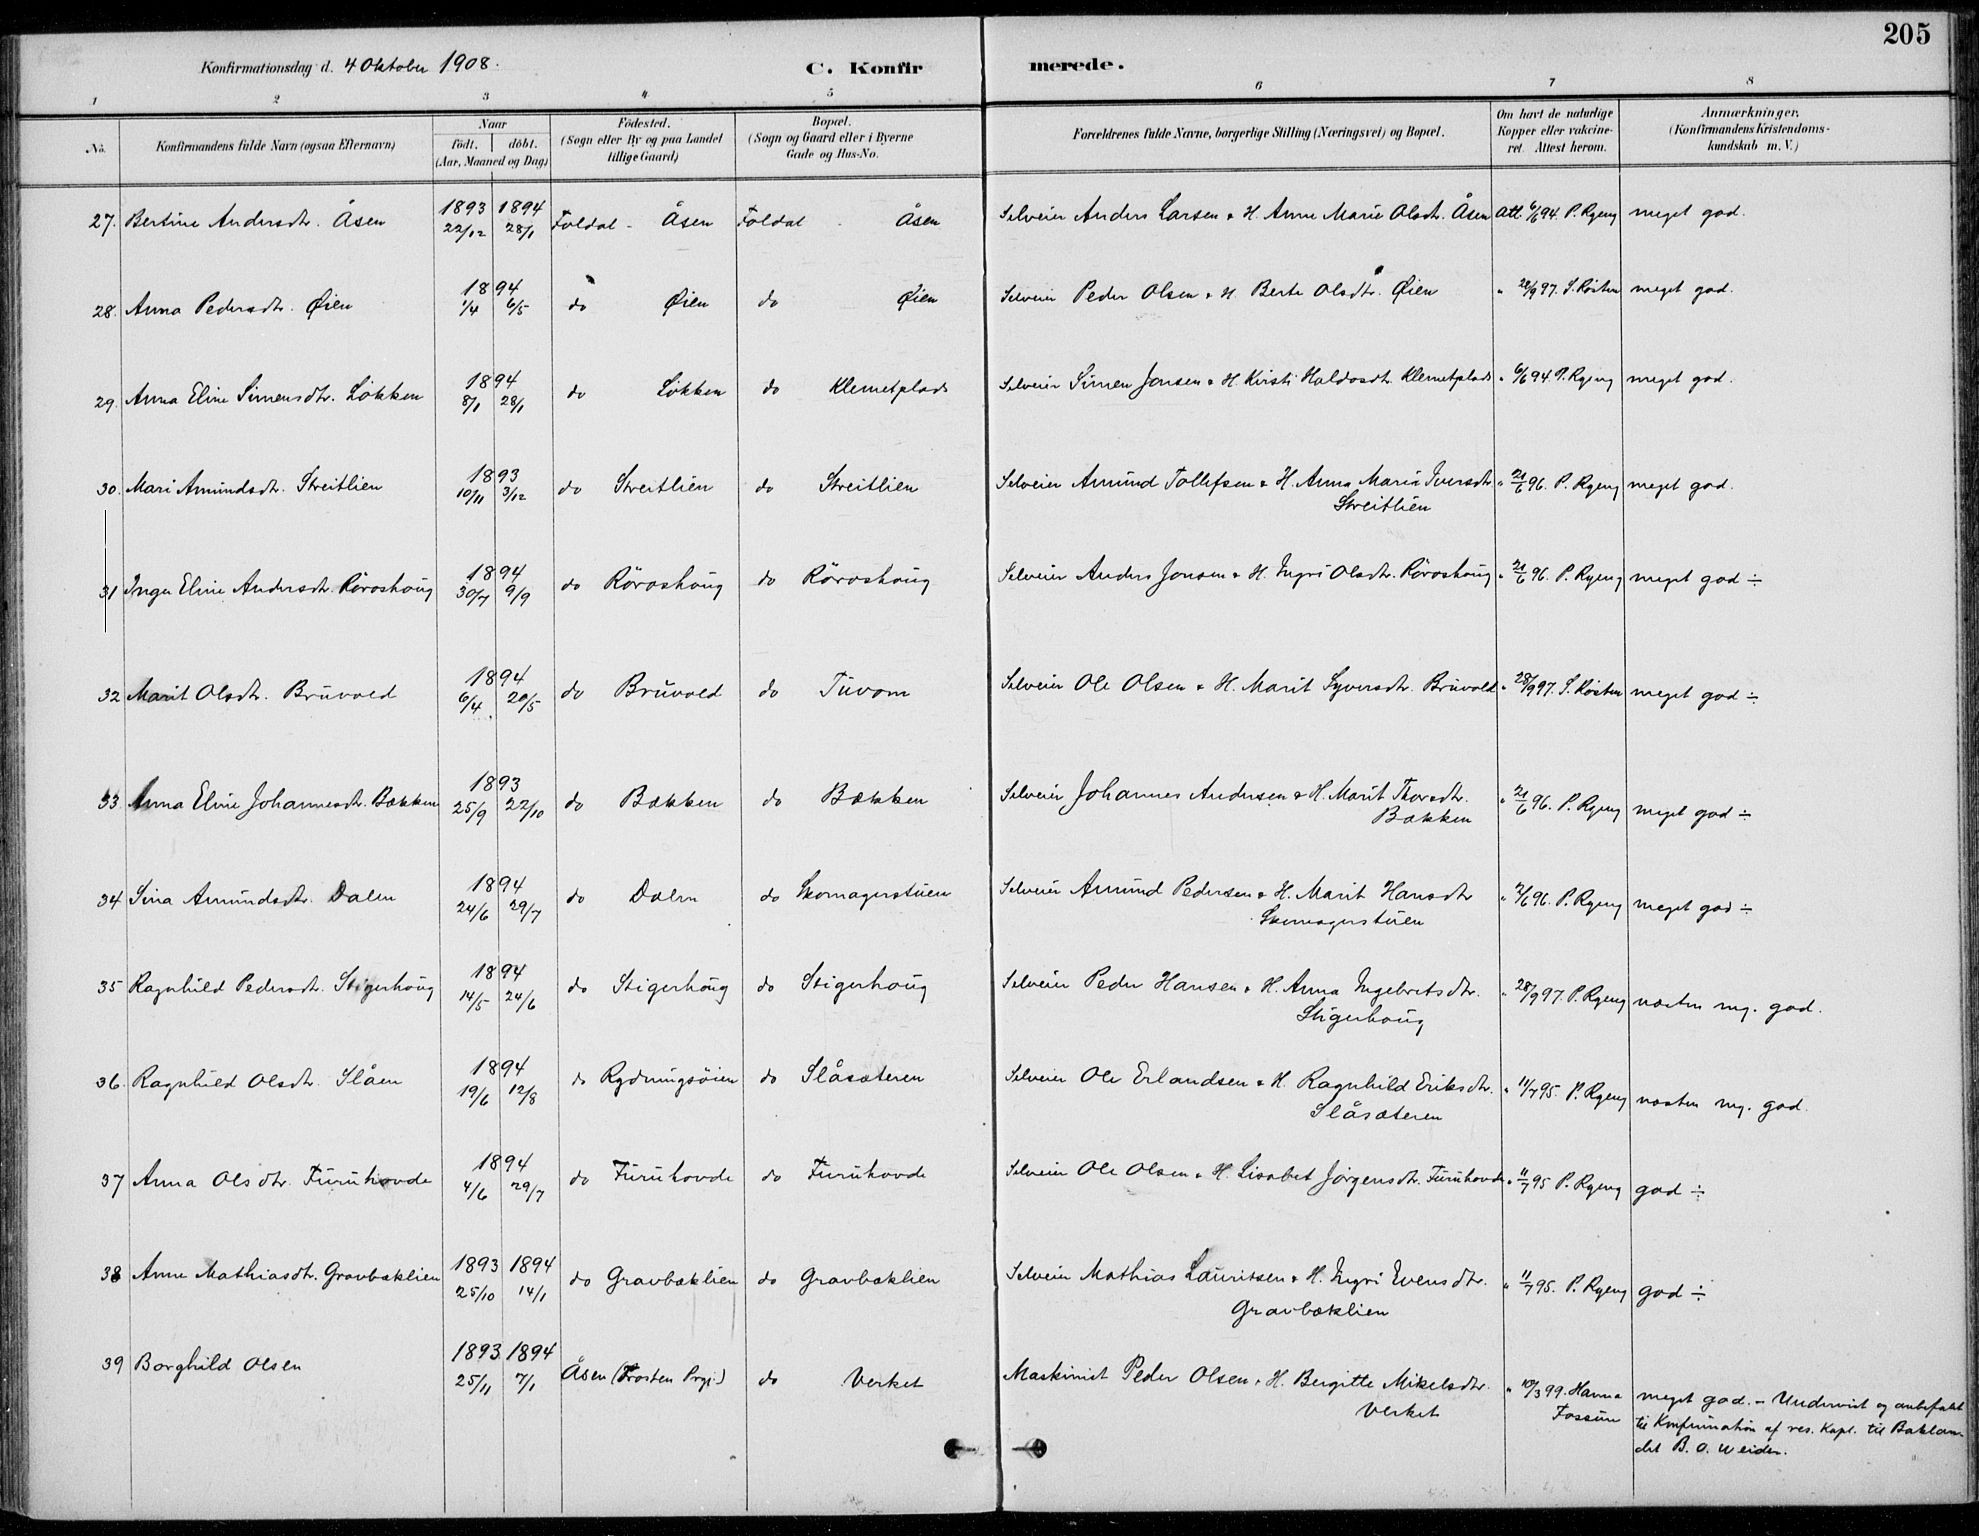 205
Konfirmationsdag d. 4 Oktober 1908.
C. Konfirmerede.
1 2 3 4 5 6 7 8
No. Konfirmandens fulde Navn (ogsaa Efternavn) Naar födt. döbt. (Aar, Maaned og Dag) Födested. (Sogn eller By og paa Landet tillige Gaard) Bopæl. (Sogn og Gaard eller i Byerne Gade og Hus-No. Forældrenes fulde Navne, borgerlige Stilling (Næringsvei) og Bopæl. Om havt de naturlige Kopper eller vakcineret. Attest herom. Anmærkninger. (Konfirmandens Kristendomskundskab m. V.)
27. Bertine Andersdtr. Åsen 1893 22/12 1894 28/1 Foldal - Åsen Foldal - Åsen Selveier Anders Larsen & H. Anne Marie Olsdtr. Åsen Att. 6/6 94. P. Ryeng meget god.
28. Anna Pedersdtr. Øien 1894 1/4 6/5 do Øien do Øien Selveier Peder Olsen & H. Berte Olsdtr. Øien " 28/9 97. S. Kosten meget god.
29. Anna Eline Simensdtr. Løkken 1894 8/1 28/1 do Løkken do Klemetplads Selveier Simen Jonsen & H. Kirsti Haldosdtr. Klemetplads " 6/6 94 P. Ryeng meget god.
30. Mari Amundsdtr. Streitlien 1893 10/11 3/12 do Streitlien do Streitlien Selveier Amund Tollefsen & H. Anna Maria Iversdtr " 21/6 96. P. Ryeng meget god.
Streitlien
31 Inga Eline Andersdtr. Röroshoug 1894 30/7 9/9 do Röroshoug do Röroshoug Selveier Anders Jonsen & H. Ingri Olsdtr. Röroshoug " 21/6 96. P. Ryeng meget god ÷
32 Marit Olsdtr. Bruvold 1894 6/4 20/5 do Bruvold do Tuvom Selveier Ole Olsen & H. Marit Syversdtr. Bruvold " 28/9 97. S. Kosten meget god ÷
33 Anna Eline Johannesdtr. Bækken 1893 25/9 22/10 do Bækken do Bækken Selveier Johannes Andersen & H. Marit Thorsdtr. " 21/6 96. P. Ryeng meget god ÷
Bækken
34 Sina Amundsdtr. Dalen 1894 24/6 29/7 do Dalen do Skomagerstuen Selveier Amund Pedersen & H. Marit Hansdtr " 21/6 96. P. Ryeng meget god ÷
Skomagerstuen
35 Ragnhild Pedersdtr. Stigerhoug 1894 14/5 24/6 do Stigerhoug do Stigerhoug Selveier Peder Hansen & H. Anna Ingebretsdtr. " 28/9 97. P. Ryeng næsten mg. god.
Stigerhoug
36. Ragnhild Olsdtr. Slåen 1894 19/6 12/8 do Rydningsöien do Slåsæteren Selveier Ole Erlandsen & H. Ragnhild Eriksdtr. " 11/7 95. P. Ryeng næsten mg. god.
Slåsæteren
37 Anna Olsdtr. Furuhovde 1894 4/6 29/7 do Furuhovde do Furuhovde Selveier Ole Olsen & H. Lisabet Jörgensdtr. Furuhovde " 11/7 95 P. Ryeng god ÷
38 Anne Mathiasdtr. Gravbæklien 1893 25/10 1894 14/1 do Gravbæklien do Gravbæklien Selveier Mathias Lauritsen & H. Ingri Evensdtr. " 11/7 95. P. Ryeng god ÷
Gravbæklien
39 Borghild Olsen 1893 25/11 1894 7/1 Åsen (Frosten Prgj.) do Verket Maskinist Peder Olsen & H. Bergitte Mikelsdtr. " 10/3 99. Hanna Fossum meget god. - Undervist og anbefalt
Verket
til Konfirmation af res. Kapl. til Baklandet B. O. Weider.